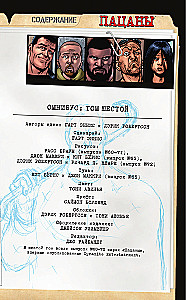 СОДЕРЖАНИЕ
ПАЦАНЫ
ОМНИБУС: ТОМ ШЕСТОЙ
Авторы идеи ГАРТ ЭННИС и ДЭРИК РОБЕРТСОН
Сценарий:
ГАРТ ЭННИС
Рисунок:
РАСС БРАУН (выпуски №60–71)
ДЖОН МАККРИ и КИТ БЁРНС (выпуск №65)
ДЭРИК РОБЕРТСОН и РИЧАРД П. КЛАРК (выпуск №72)
Тушь:
КИТ БЁРНС и ДЖОН МАККРИ (выпуск №65)
Цвет:
ТОНИ АВИНЬЯ
Шрифт:
САЙМОН БОУЛЕНД
Обложки:
ДЭРИК РОБЕРТСОН и ТОНИ АВИНЬЯ
Оформление издания:
ДЖЕЙСОН УЛЛМЕЙЕР
Редактор:
ДЖО РАЙБАНДТ